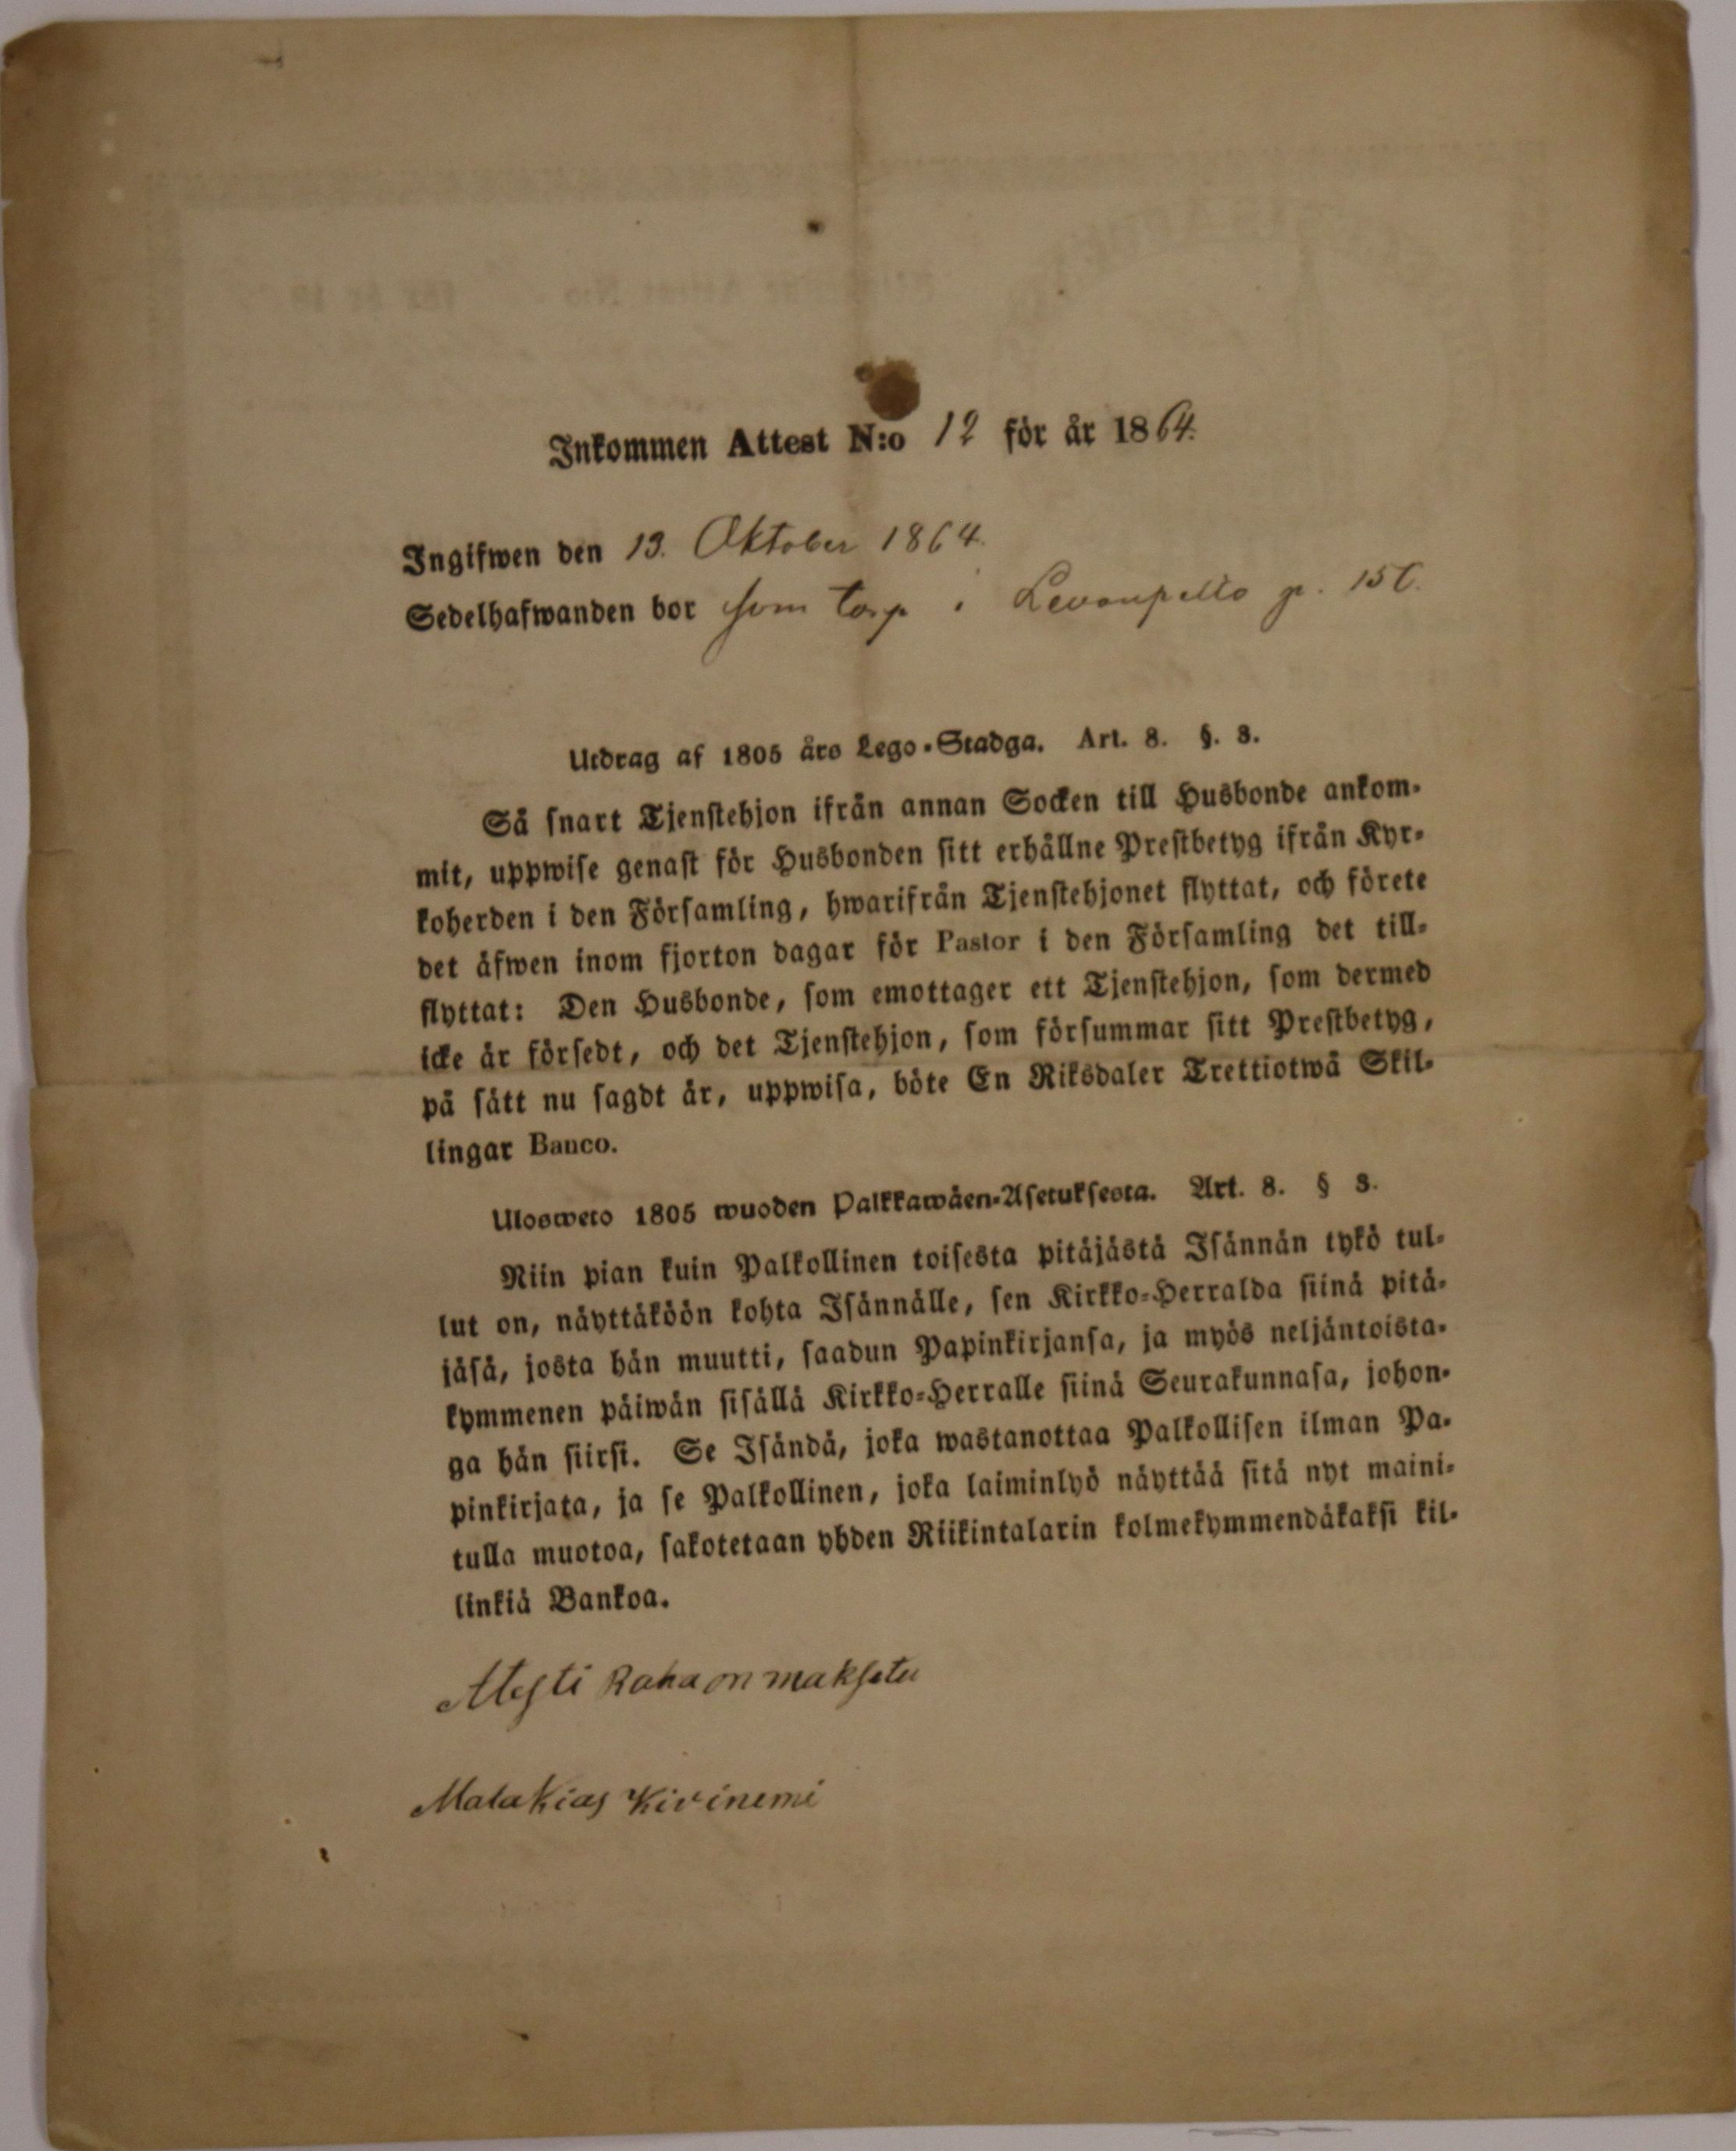 Inkommen Attest N:o 12 för år 1864.
Ingifwen den 13. Oktober 1864.
Sedelhafwanden bor som torp i Levonpelto p. 150.
Utdrag af 1805 års Lego-Stadga. Art. 8. §. 3.
Så snart Tjenstehjon ifrån annan Socken till Husbonde ankom-
mit, uppwise genast för Husbonden sitt erhållne Prestbetyg ifrån Kyr-
koherden i den Församling, hwarifrån Tjenstehjonet flyttat, och förete
det äfwen inom fjorton dagar för Pastor i den Församling det till-
flyttat: Den Husbonde, som emottager ett Tjenstehjon, som dermed
icke är försedt, och det Tjenstehjon, som försummar sitt Prestbetyg,
på sätt nu sagdt är, uppwisa, böte En Riksdaler Trettiotwå Skil-
lingar Banco.
Ulosweto 1805 wuoden Palkkawäen-Asetuksesta. Art. 8. § 3.
Niin pian kuin Palkollinen toisesta pitäjästä Isännän tykö tul-
lut on, näyttäköön kohta Isännälle, sen Kirkko-Herralda siinä pitä-
jäsä, josta hän muutti, saadun Papinkirjansa, ja myös neljäntoista-
kymmenen päiwän sisällä Kirkko-Herralle siinä Seurakunnasa, johon-
ga hän siirsi. Se Isändä, joka wastanottaa Palkollisen ilman Pa-
pinkirjata, ja se Palkollinen, joka laiminlyö näyttää sitä nyt maini-
tulla muotoa, sakotetaan yhden Riikintalarin kolmekymmendäkaksi kil-
linkiä Bankoa.
Atesti Raha on maksetu
Malakias Kivinemi